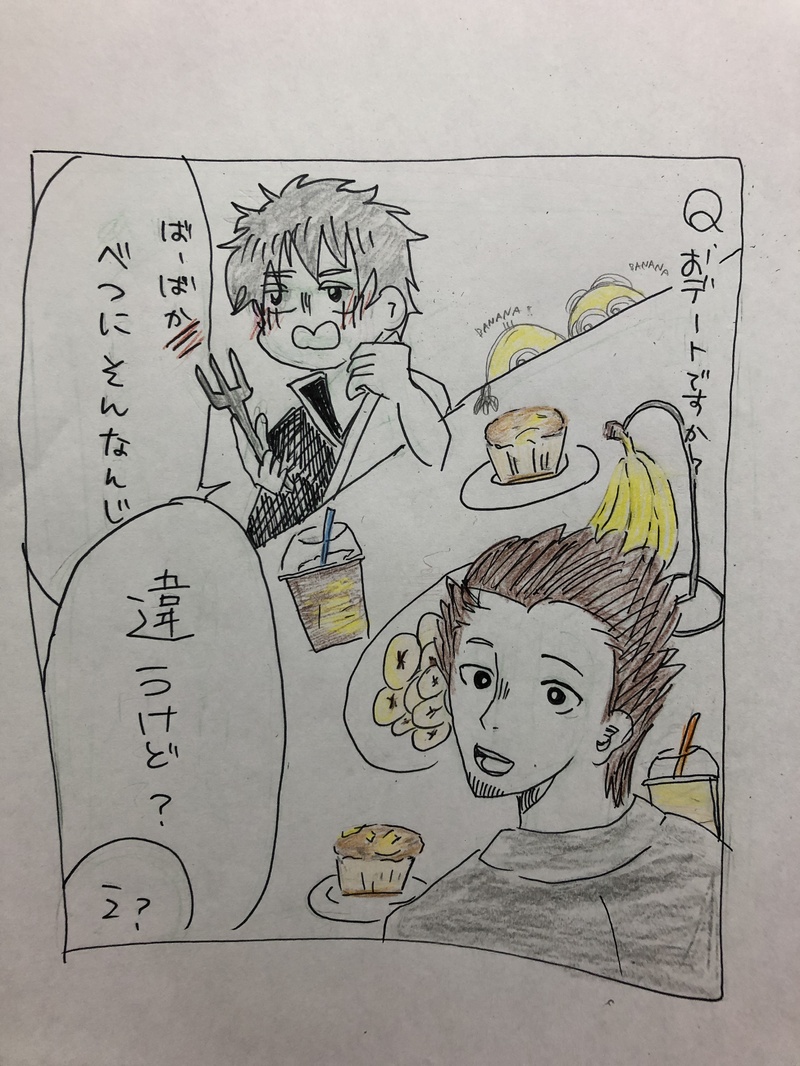 Q おデートですか?
BANANA
BANANA!
ばーばか
べつにそんなんじ
違うけど?
え?